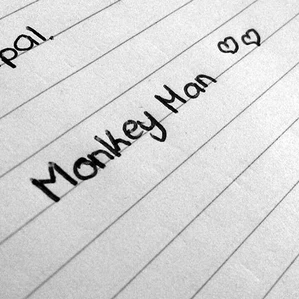 pal.
Monkey Man ♡♡